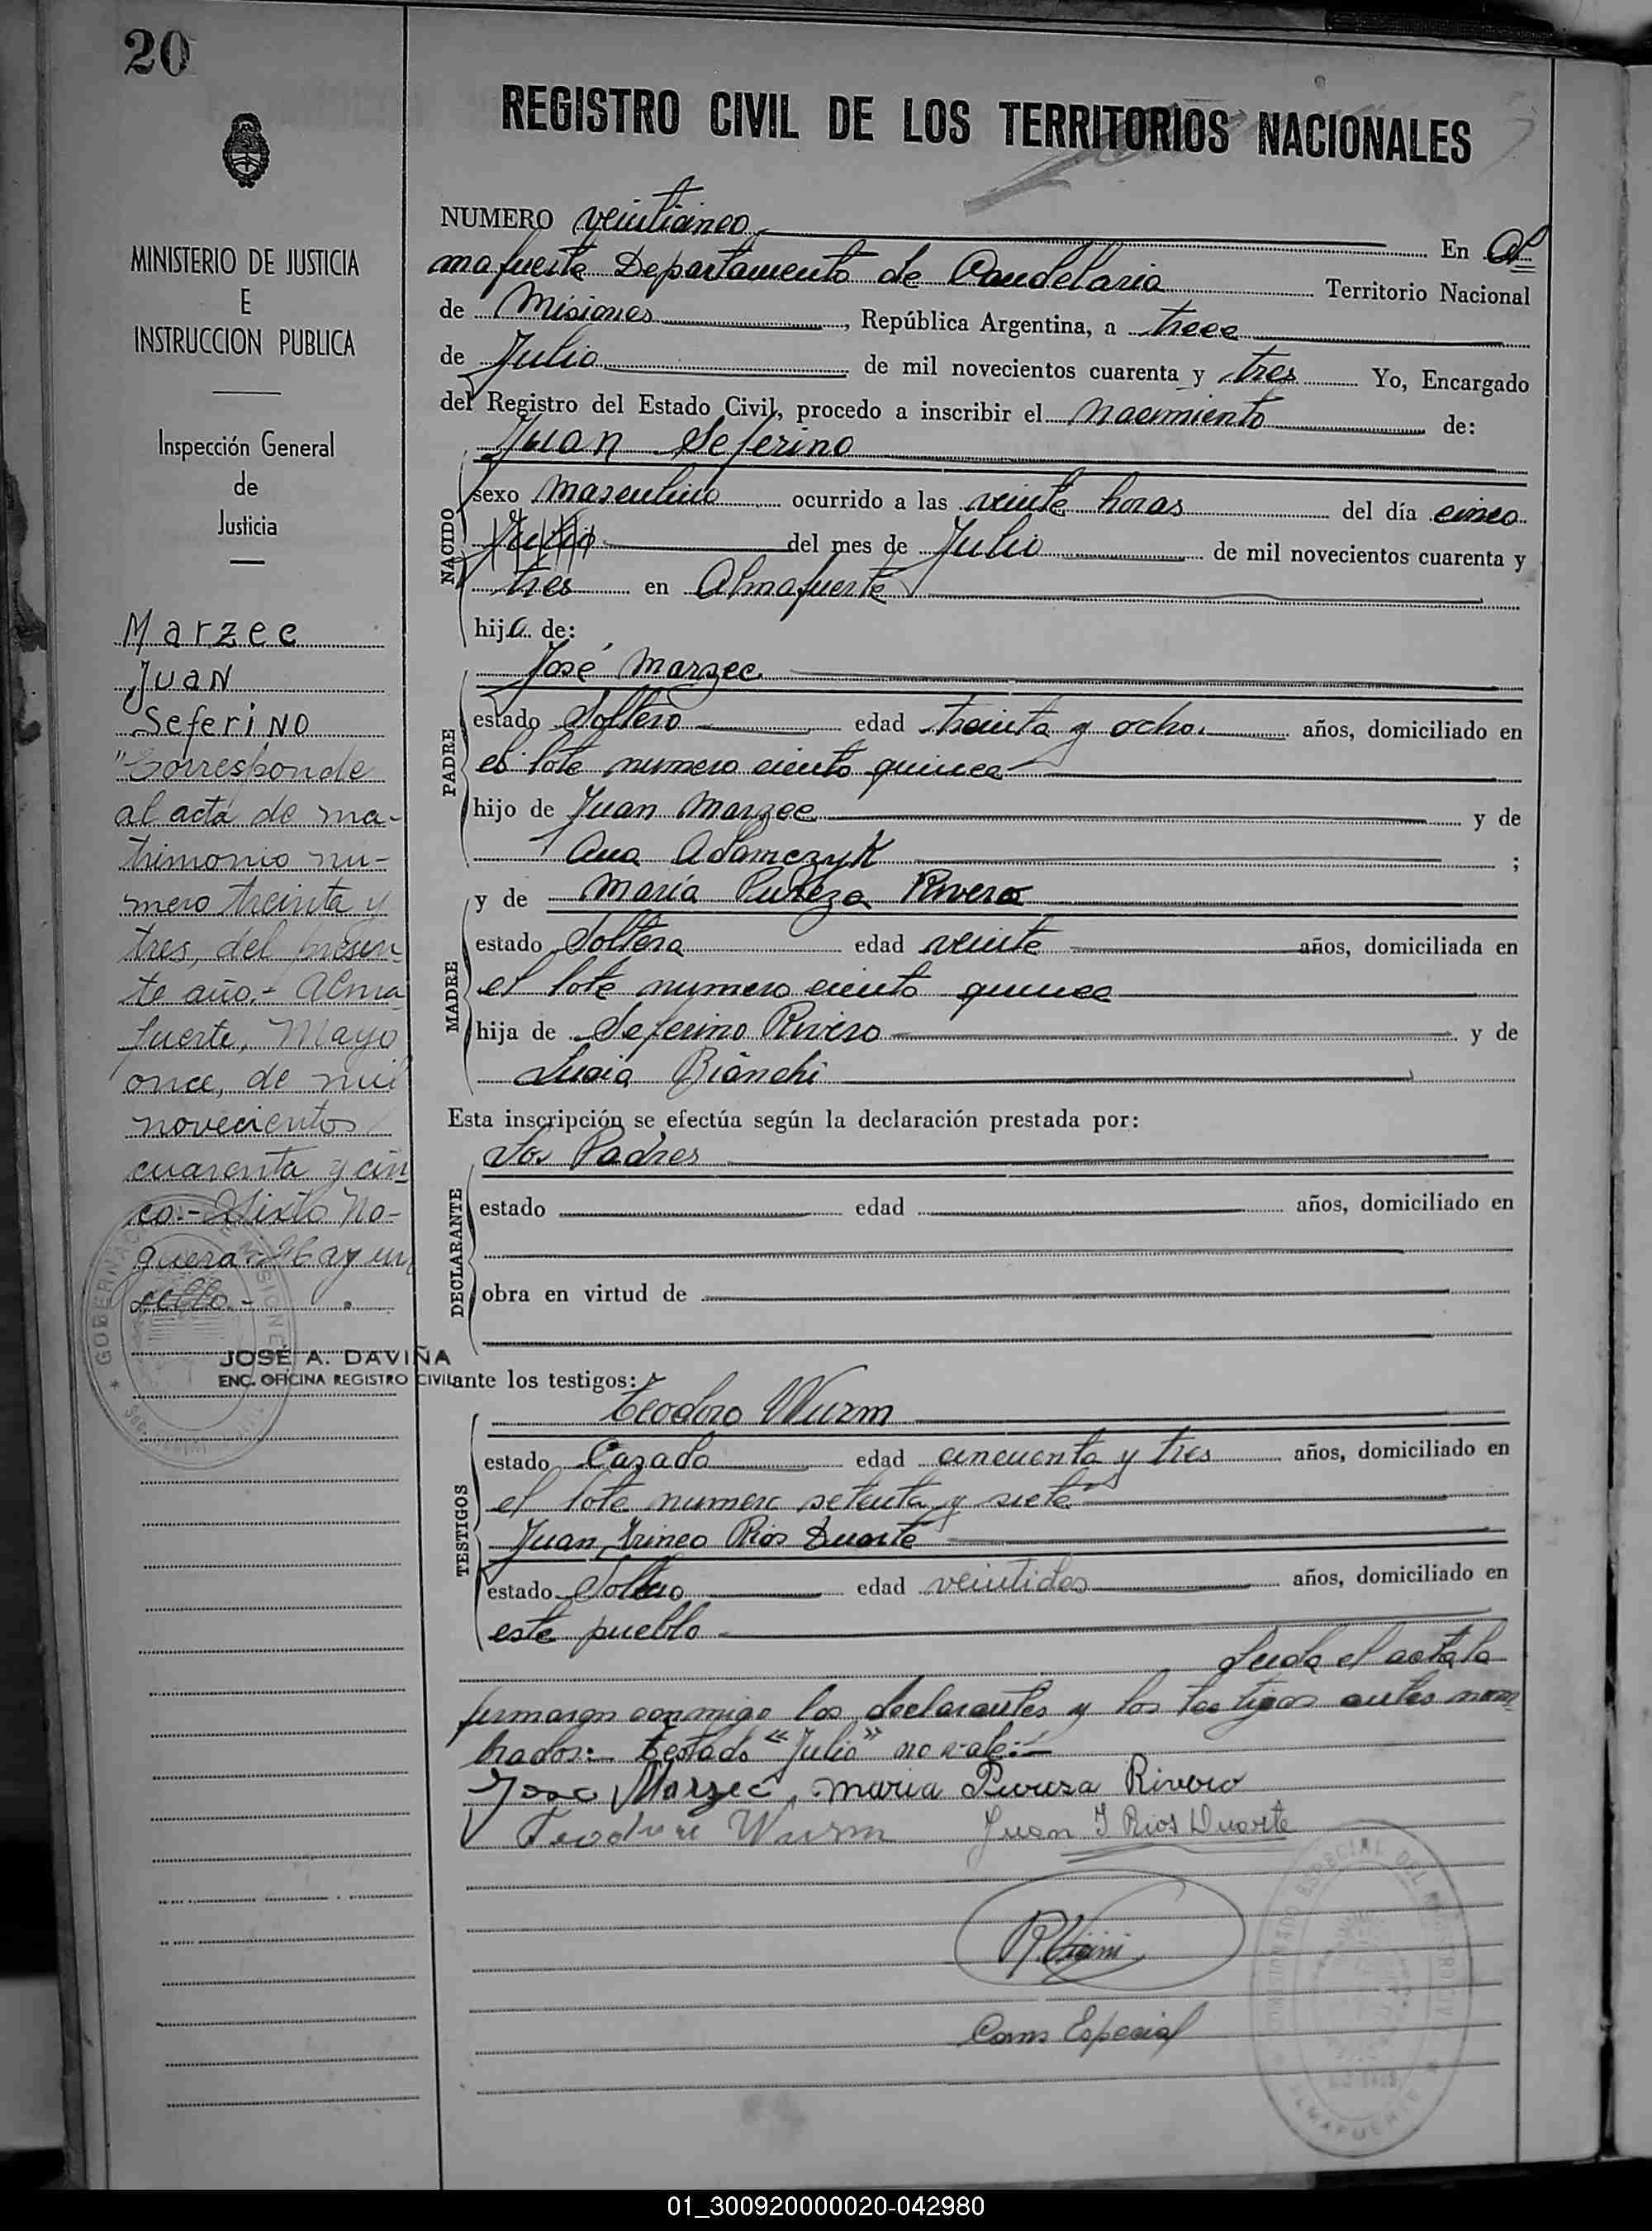 20
REGISTRO CIVIL DE LOS TERRITORIOS NACIONALES
MINISTERIO DE JUSTICIA
E
INSTRUCCION PUBLICA
Inspección General
de
Justicia
Marzec
Juan
Seferino
"Corresponde
al acta de ma-
trimonio nu-
mero treinta y
tres, del presen-
te año.- Alma
fuerte, Mayo
once, de mil
novecientos
cuarenta y cin
co.- Sixto No-
guera - Hay un
sello.-
JOSÉ A. DAVIÑA
ENC. OFICINA REGISTRO CIVIL
NUMERO veinticinco En Al
mafuerte Departamento de Candelaria Territorio Nacional
de Misiones, República Argentina, a trece
de Julio de mil novecientos cuarenta y tres Yo, Encargado
del Registro del Estado Civil, procedo a inscribir el nacimiento de:
Juan Seferino
NACIDO
sexo masculino ocurrido a las veinte horas del día cinco
Julio del mes de Julio de mil novecientos cuarenta y
tres en Almafuerte
hijo de:
José Marzec
PADRE
estado Soltero edad treinta y ocho años, domiciliado en
el lote numero ciento quince
hijo de Juan Marzec y de
Ana Adamczyk ;
y de María Pureza Rivero
MADRE
estado Soltera edad veinte años, domiciliada en
el lote numero ciento quince
hija de Seferino Rivero y de
Lucia Bianchi
Esta inscripción se efectúa según la declaración prestada por:
Los Padres
DECLARANTE
estado edad años, domiciliado en
obra en virtud de
ante los testigos:
Teodoro Wurm
TESTIGOS
estado Casado edad cincuenta y tres años, domiciliado en
el lote numero setenta y siete
Juan Irineo Rios Duarte
estado Soltero edad veintidos años, domiciliado en
este pueblo
Leida el acta la
firmaron conmigo los declarantes y los testigos antes nom
brados: Testado "Julio" no vale:-
Jose Marzec, maria Pureza Rivero
Teodoro Wurm Juan I Rios Duarte
Coms Especial
ALMAFUERTE
01_300920000020-042980